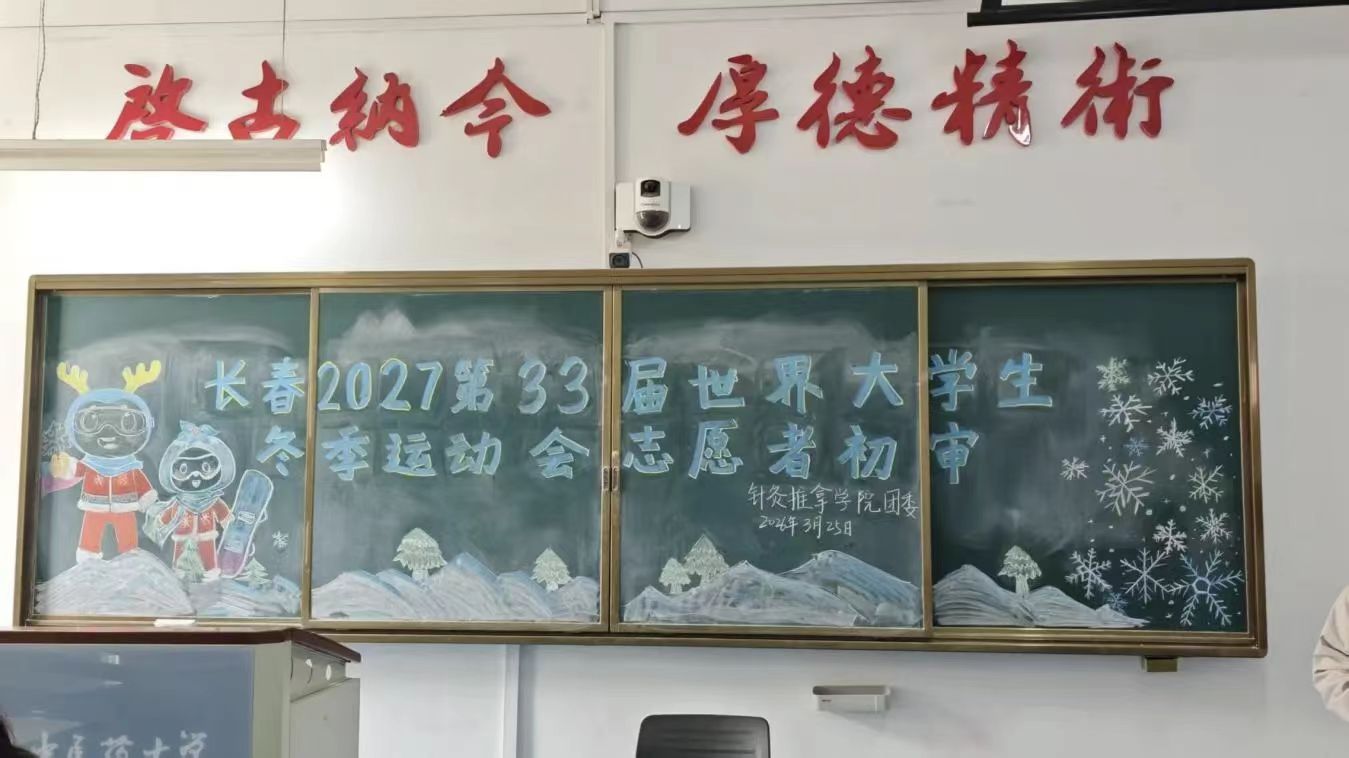 啓古納今 厚德精術
长春2027第33届世界大学生
冬季运动会志愿者初审
针灸推拿学院团委
2026年3月25日
中医药大学